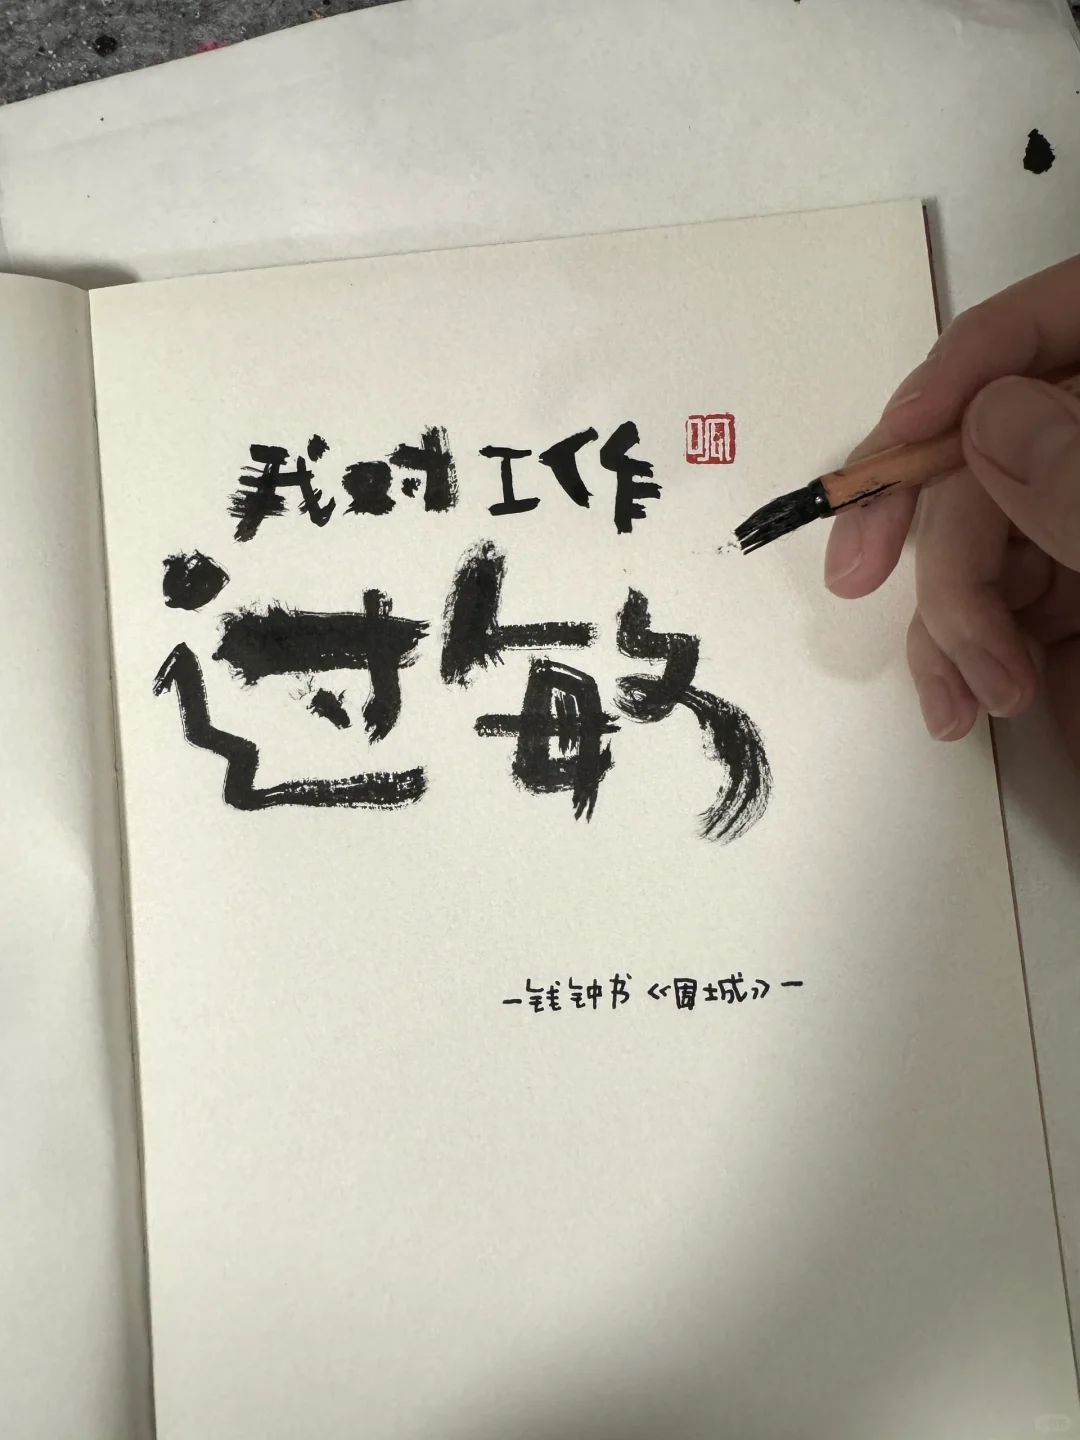 我对工作
过敏
-钱钟书《围城》-